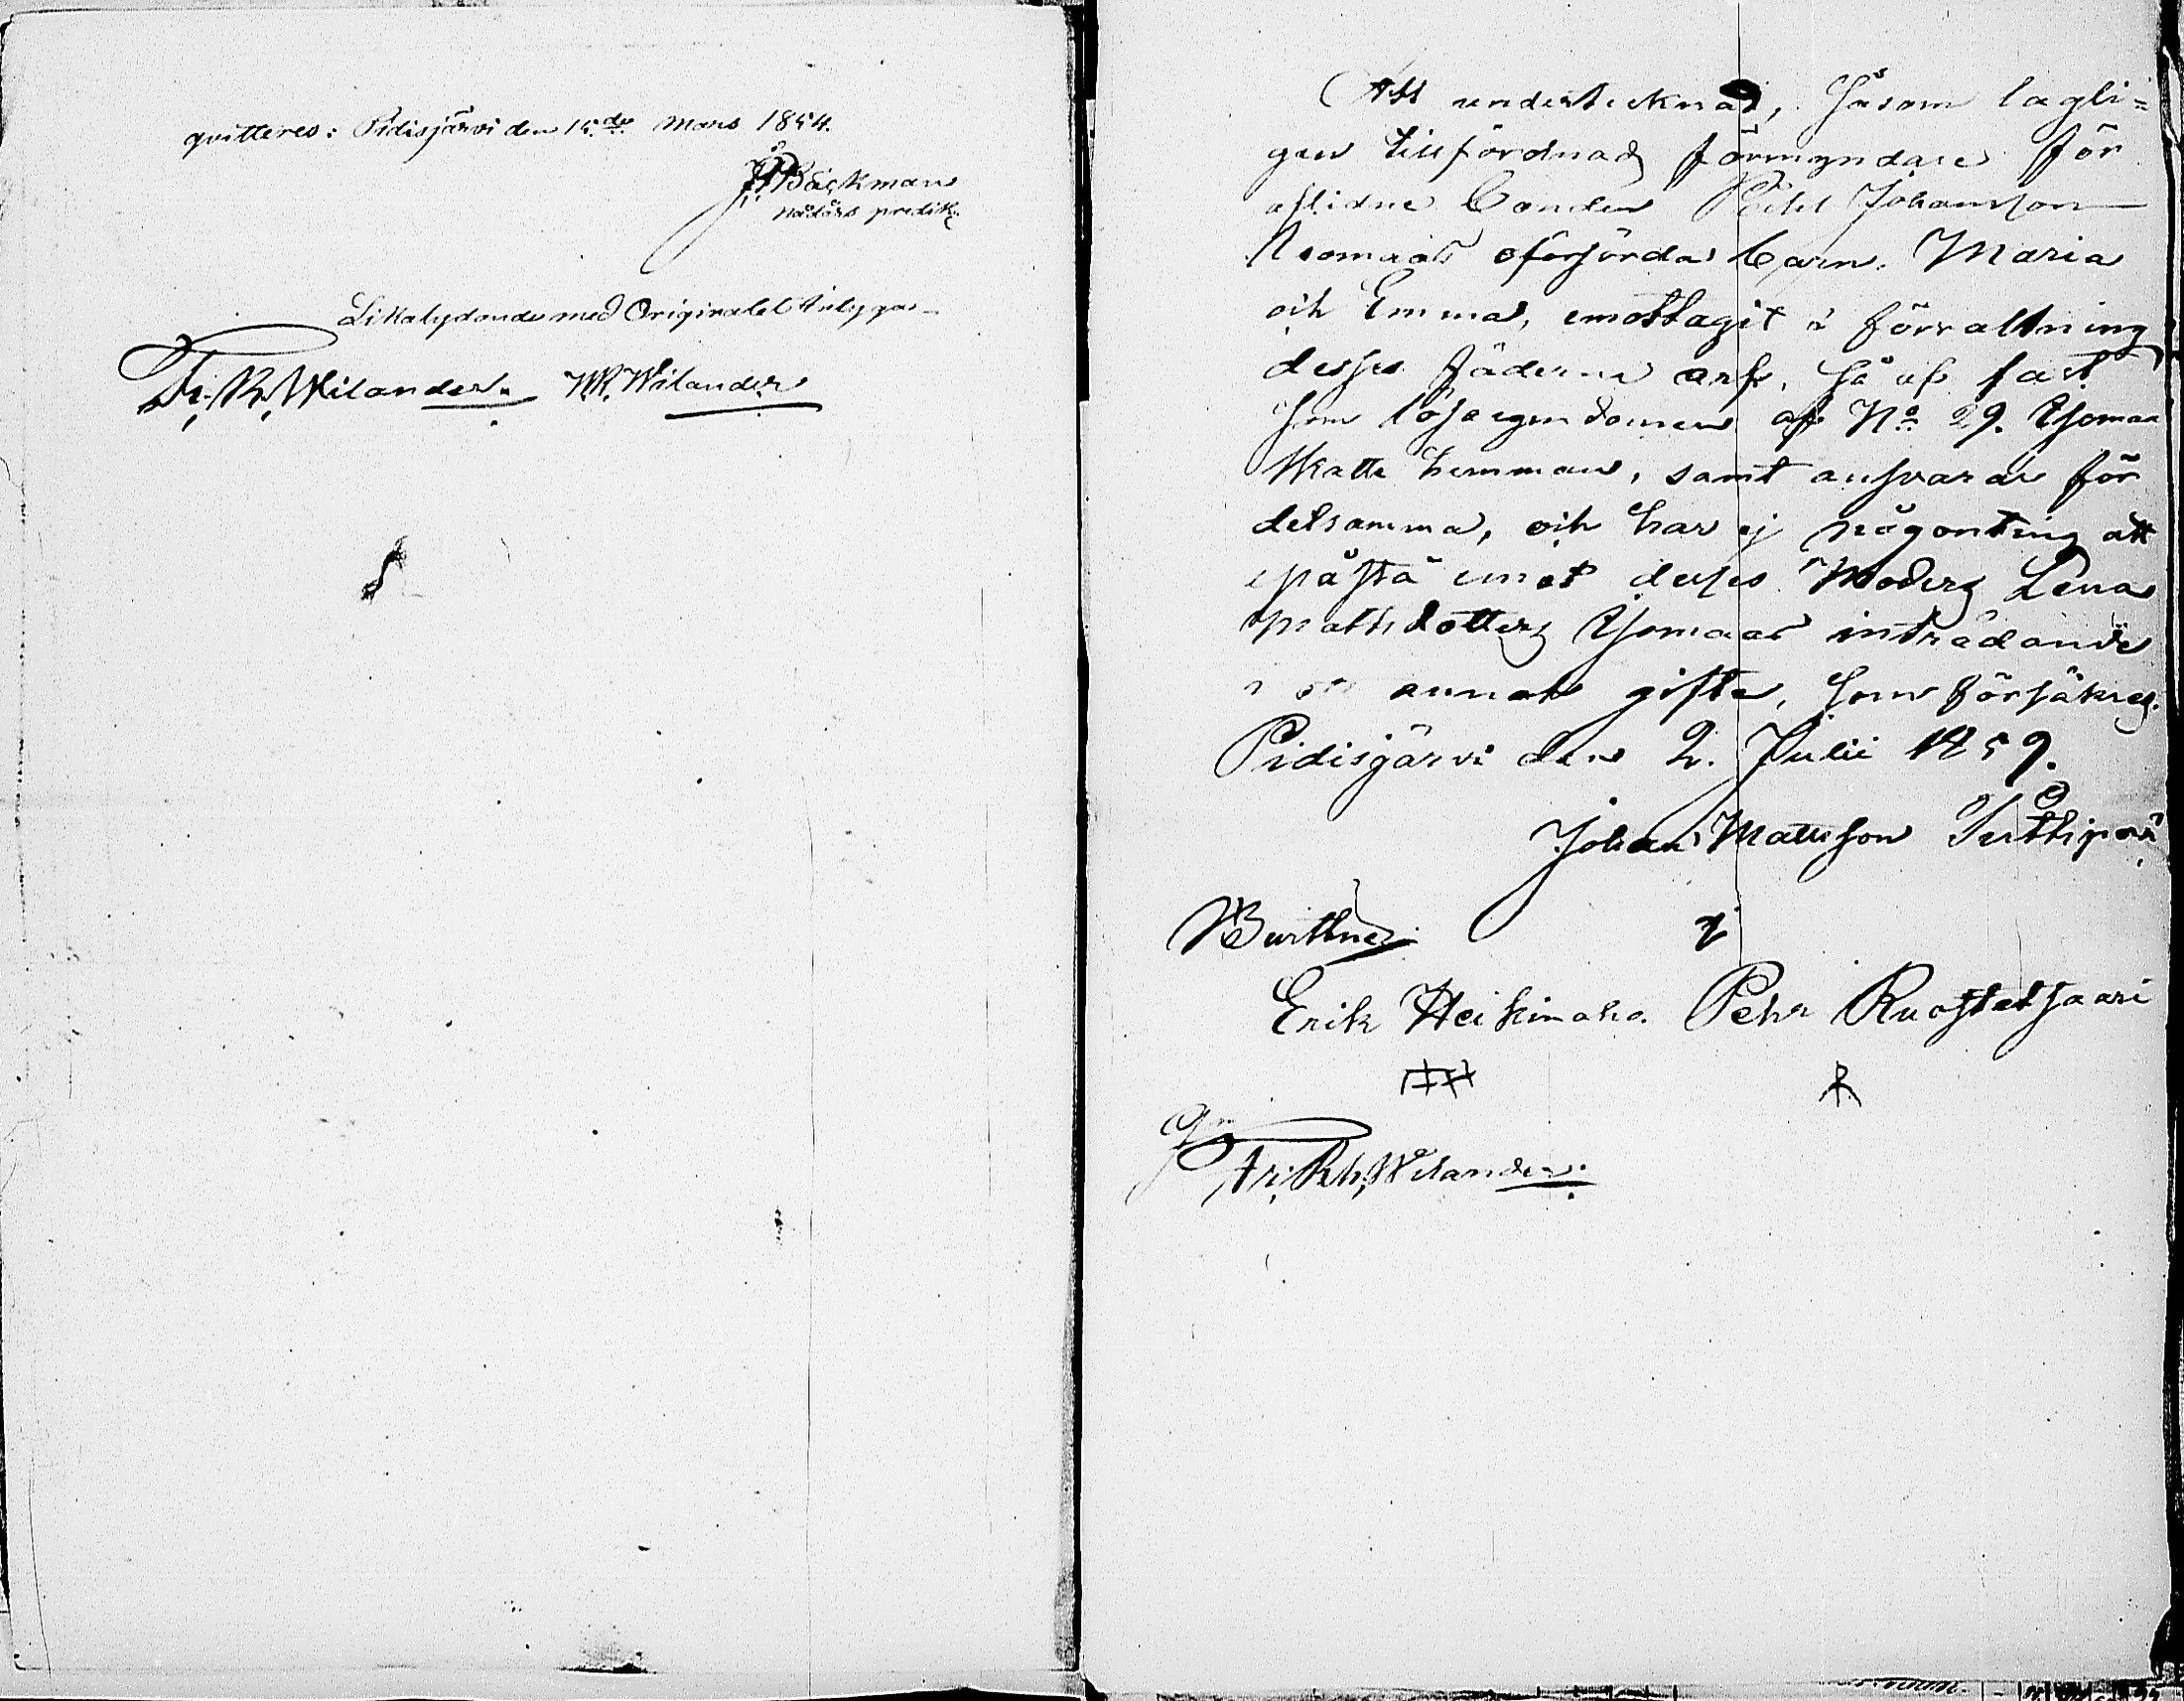 qvitteres: Pidisjärvi den 15de Mars 1854.
Bäckman
nådårs predik:
Likalydande med Originalet intygar
Fr. R. Wilander. W. Wilander
Att undertecknad, såsom lagli=
gen tillförordnad förmyndare för
aflidne bonden Johansson
oförsörda barn. Maria
och Emma, emottagit i förvaltning
desses fäderne arf, så af fast
som lösa egendomen af No 29. Ojomaa
Skatte hemman, samt ansvarar för
detsamma, och har ej någonting att
påstå emot desses Moder Lena
Mattsdotter Ojomaas inträdande
i annat gifte, som försäkras.
Pidisjärvi den 2. Julii 1859.
Johan Mattsson Juttiperä
Wittna:
Erik Heikinaho. Pehr Ruostetsaari
Fr. Rh. Wilander.